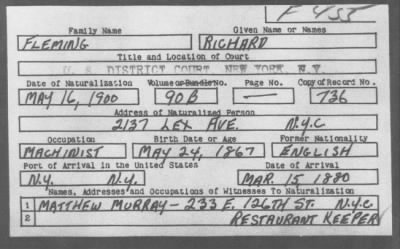 F 455
Family Name Given Name or Names
FLEMING RICHARD
Title and Location of Court
U. S. DISTRICT COURT NEW YORK N.Y.
Date of Naturalization Volume or Bundle No. Page No. Copy of Record No.
MAY 16, 1900 90B — 736
Address of Naturalized Person
2137 LEX AVE. N.Y.C
Occupation Birth Date or Age Former Nationality
MACHINIST MAY 24, 1867 ENGLISH
Port of Arrival in the United States Date of Arrival
N.Y. N.Y. MAR. 15 1880
Names, Addresses and Occupations of Witnesses To Naturalization
1 MATTHEW MURRAY - 233 E. 126TH ST. N.Y.C
2 RESTAURANT KEEPER